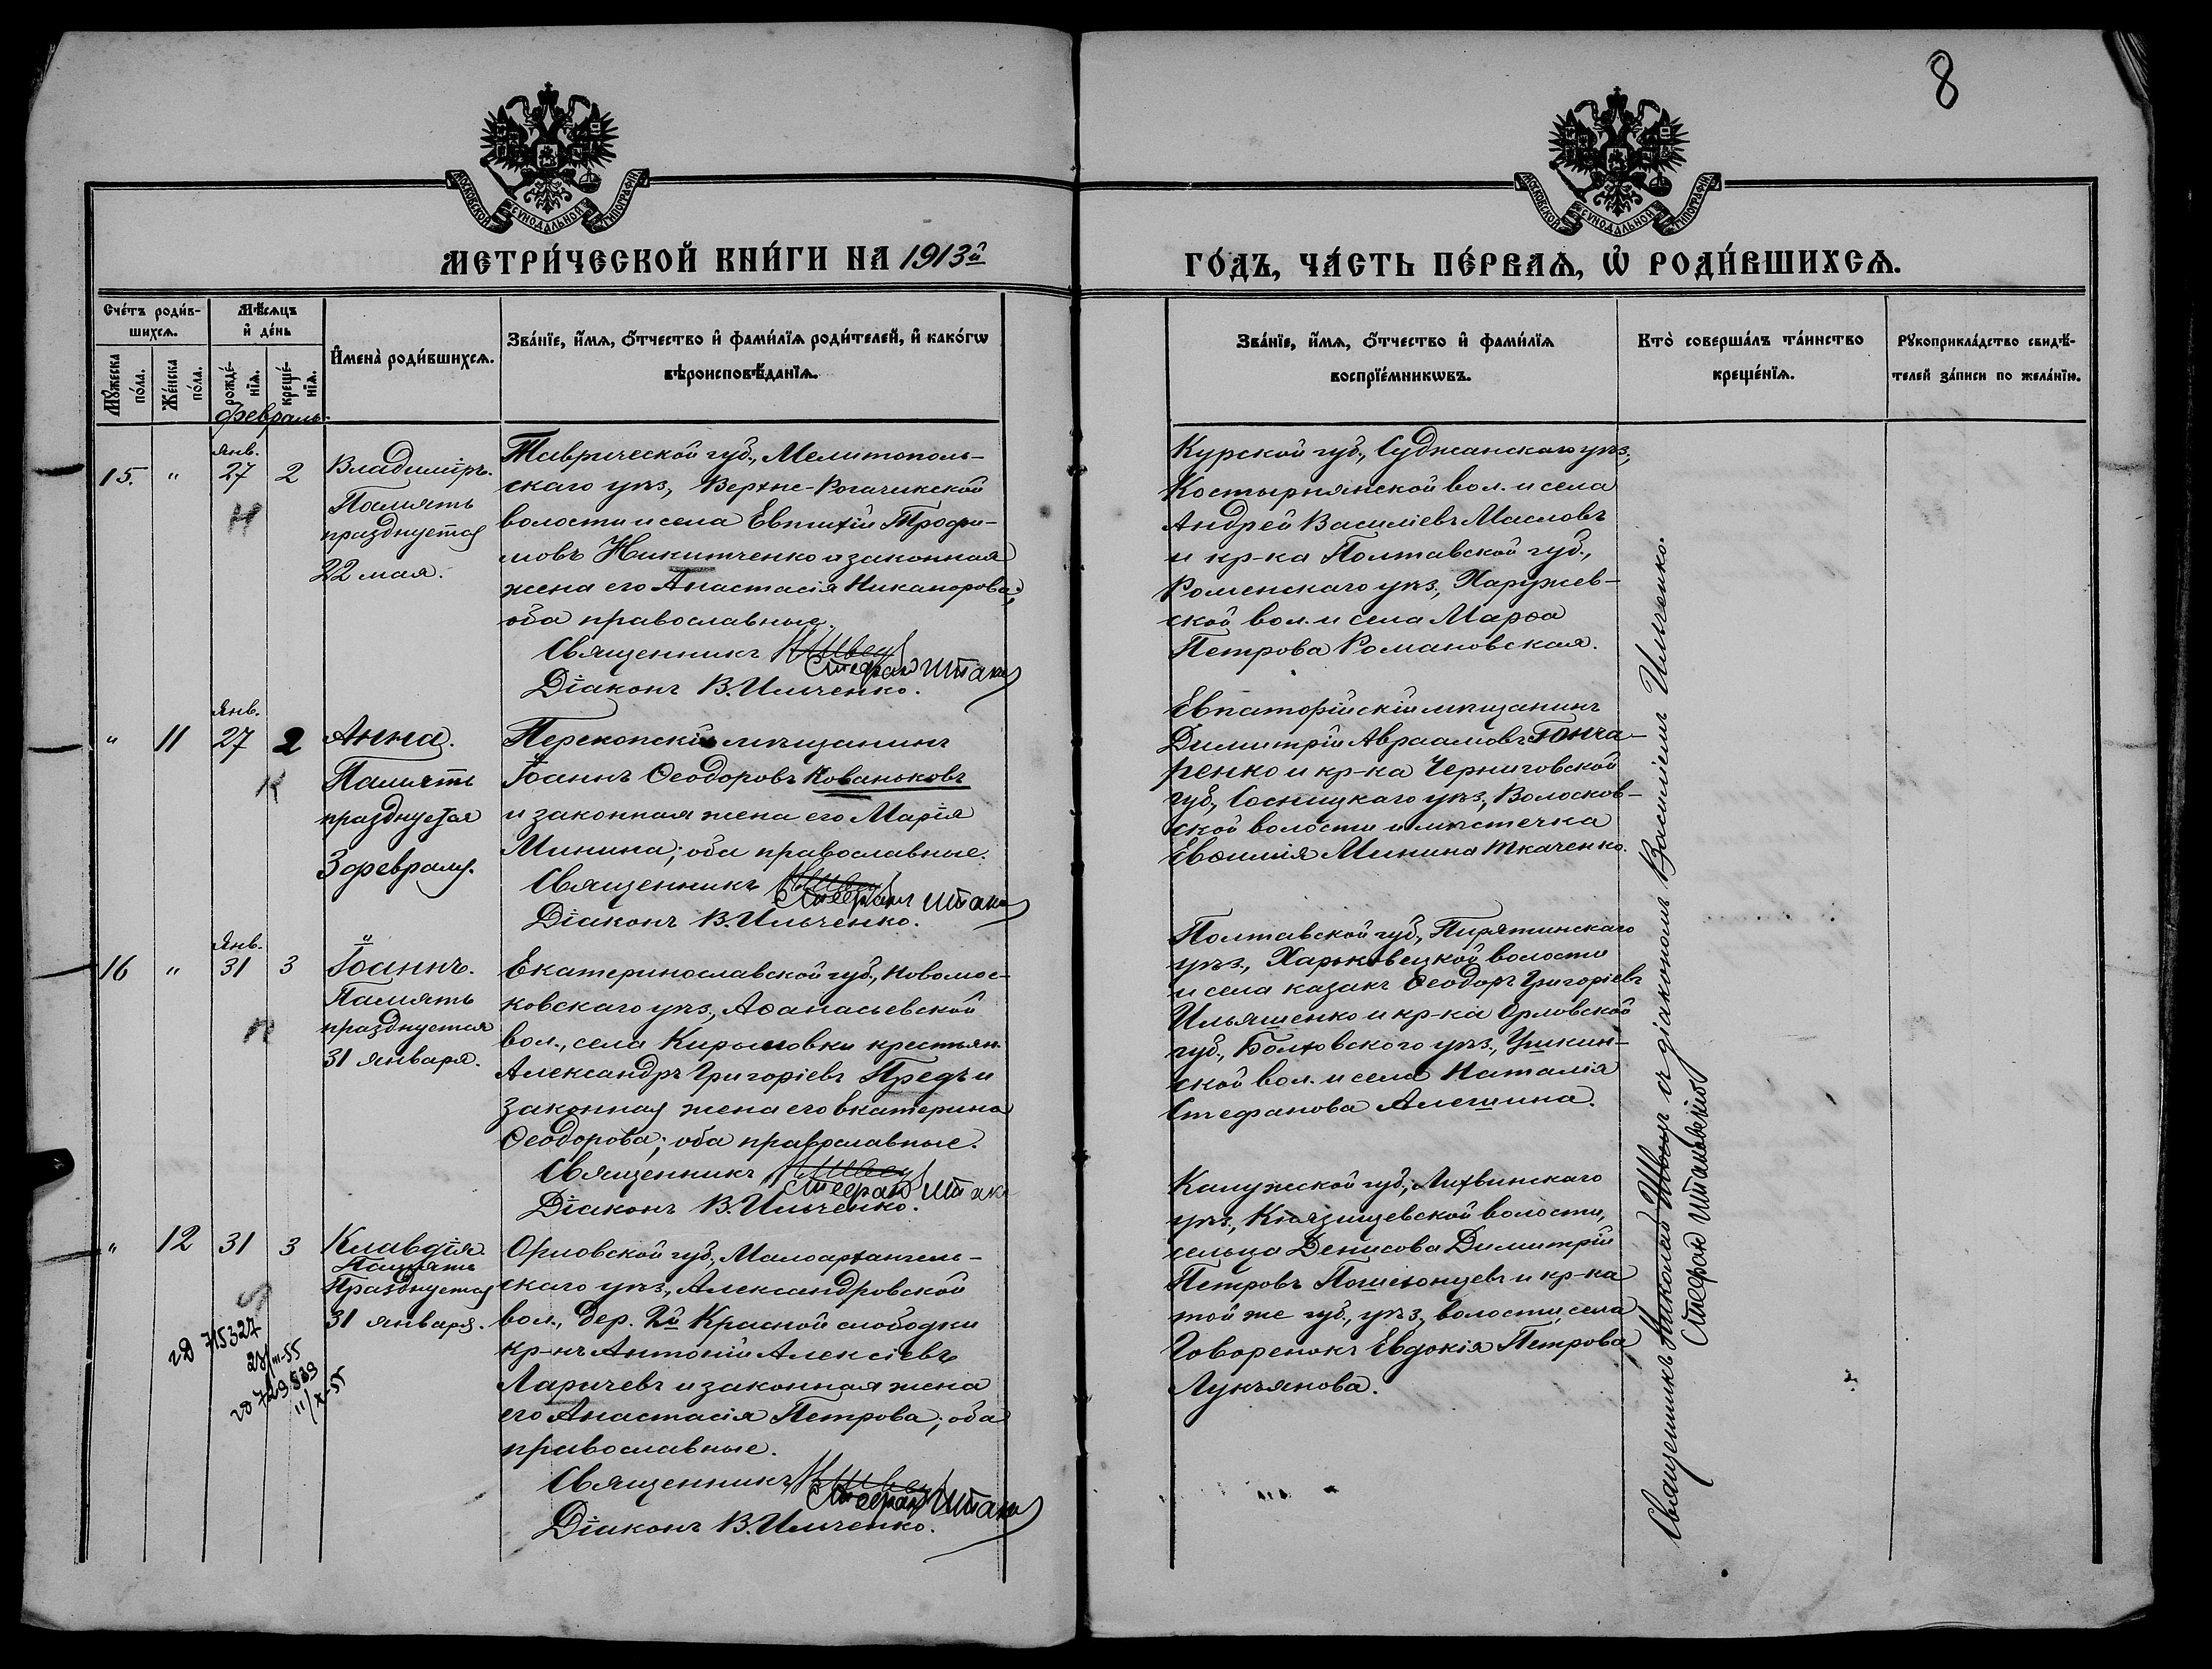 8
МОСКОВСКОЙ СѴНОДАЛЬНОЙ ТИПОГРАФІИ
МОСКОВСКОЙ СѴНОДАЛЬНОЙ ТИПОГРАФІИ
МЕТРИ́ЧЕСКОЙ КНИ́ГИ НА 1913й
ГО́ДЪ, ЧА́СТЬ ПЕ́РВАѦ, Ѡ҆ РОДИ́ВШИХСѦ.
Сче́тъ роди́в-
шихсѧ.
Мꙋ́жеска
по́ла.
Же́нска
по́ла.
Мѣ́сѧцъ
и҆ де́нь
рожде́-
нїѧ.
креще́-
нїѧ.
Февраль.
И҆мена̀ роди́вшихсѧ.
Зва́нїе, и҆́мѧ, ѻ҆́тчество и҆ фами́лїѧ роди́телей, и҆ како́гѡ
вѣроисповѣ́данїѧ.
Зва́нїе, и҆́мѧ, ѻ҆́тчество и҆ фами́лїѧ
воспрїе́мникѡвъ.
Кто̀ соверша́лъ та́инство
креще́нїѧ.
Рꙋкоприкла́дство свидѣ́-
телей за́писи по жела́нїю.
15.
"
Янв.
27
2
Н
Владиміръ.
Память
празднуется
22 мая.
Таврической губ., Мелитополь-
скаго уѣз., Верхне-Рогачикской
волости и села Евтихій Трофи-
мовъ Никитченко и законная
жена его Анастасія Никанорова;
оба православные.
Священникъ Н Швец
Стефан Штак
Діаконъ В. Ильченко.
Курской губ., Суджанскаго уѣз.,
Костырнянской вол. и села
Андрей Василіевъ Масловъ
и кр-ка Полтавской губ.,
Роменскаго уѣз., Харужев-
ской вол. и села Марѳа
Петрова Романовская.
"
11
Янв.
27
2
К
Анна.
Память
празднуется
3 февраля.
Перекопскій мѣщанинъ
Іоаннъ Ѳеодоровъ Кованьковъ
и законная жена его Марія
Минина; оба православные.
Священникъ Н Швец
Стефан Штак
Діаконъ В. Ильченко.
Евпаторійскій мѣщанинъ
Димитрій Авраамовъ Гонча-
ренко и кр-ка Черниговской
губ., Сосницкаго уѣз., Волосков-
ской волости и мѣстечка
Евѳимія Минина Ткаченко.
16
"
Янв.
31
3
П
Іоаннъ.
Память
празднуется
31 января.
Екатеринославской губ., Новомос-
ковскаго уѣз., Аѳанасьевской
вол., села Кириловки крестьян.
Александръ Григоріевъ Предъ и
законная жена его Екатерина
Ѳеодорова; оба православные.
Священникъ Н Швец
Стефан Штак
Діаконъ В. Ильченко.
Полтавской губ., Пирятинскаго
уѣз., Харьковецкой волости
и села казакъ Ѳеодоръ Григоріевъ
Ильяшенко и кр-ка Орловской
губ., Болховского уѣз., Ушкин-
ской вол. и села Наталія
Стефанова Алешина.
"
12
31
3
Клавдія.
Память
Празднуется
31 января.
Орловской губ., Малоархангель-
скаго уѣз., Александровской
вол., дер. 2й Красной слободки
кр-нъ Антоній Алексіевъ
Ларичевъ и законная жена
его Анастасія Петрова; оба
православные.
Священникъ Н Швец
Стефан Штак
Діаконъ В. Ильченко.
Калужской губ., Лихвинскаго
уѣз., Князищевской волости,
сельца Денисова Димитрій
Петровъ Пошехонцевъ и кр-ка
той же губ., уѣз., волости, села
Говоренокъ Евдокія Петрова
Лукъянова.
715327
23/III-55
729539
11/X-55
Священникъ Николай Швецъ съ діакономъ Василіемъ Ильченко.
Стефан Штаньковко